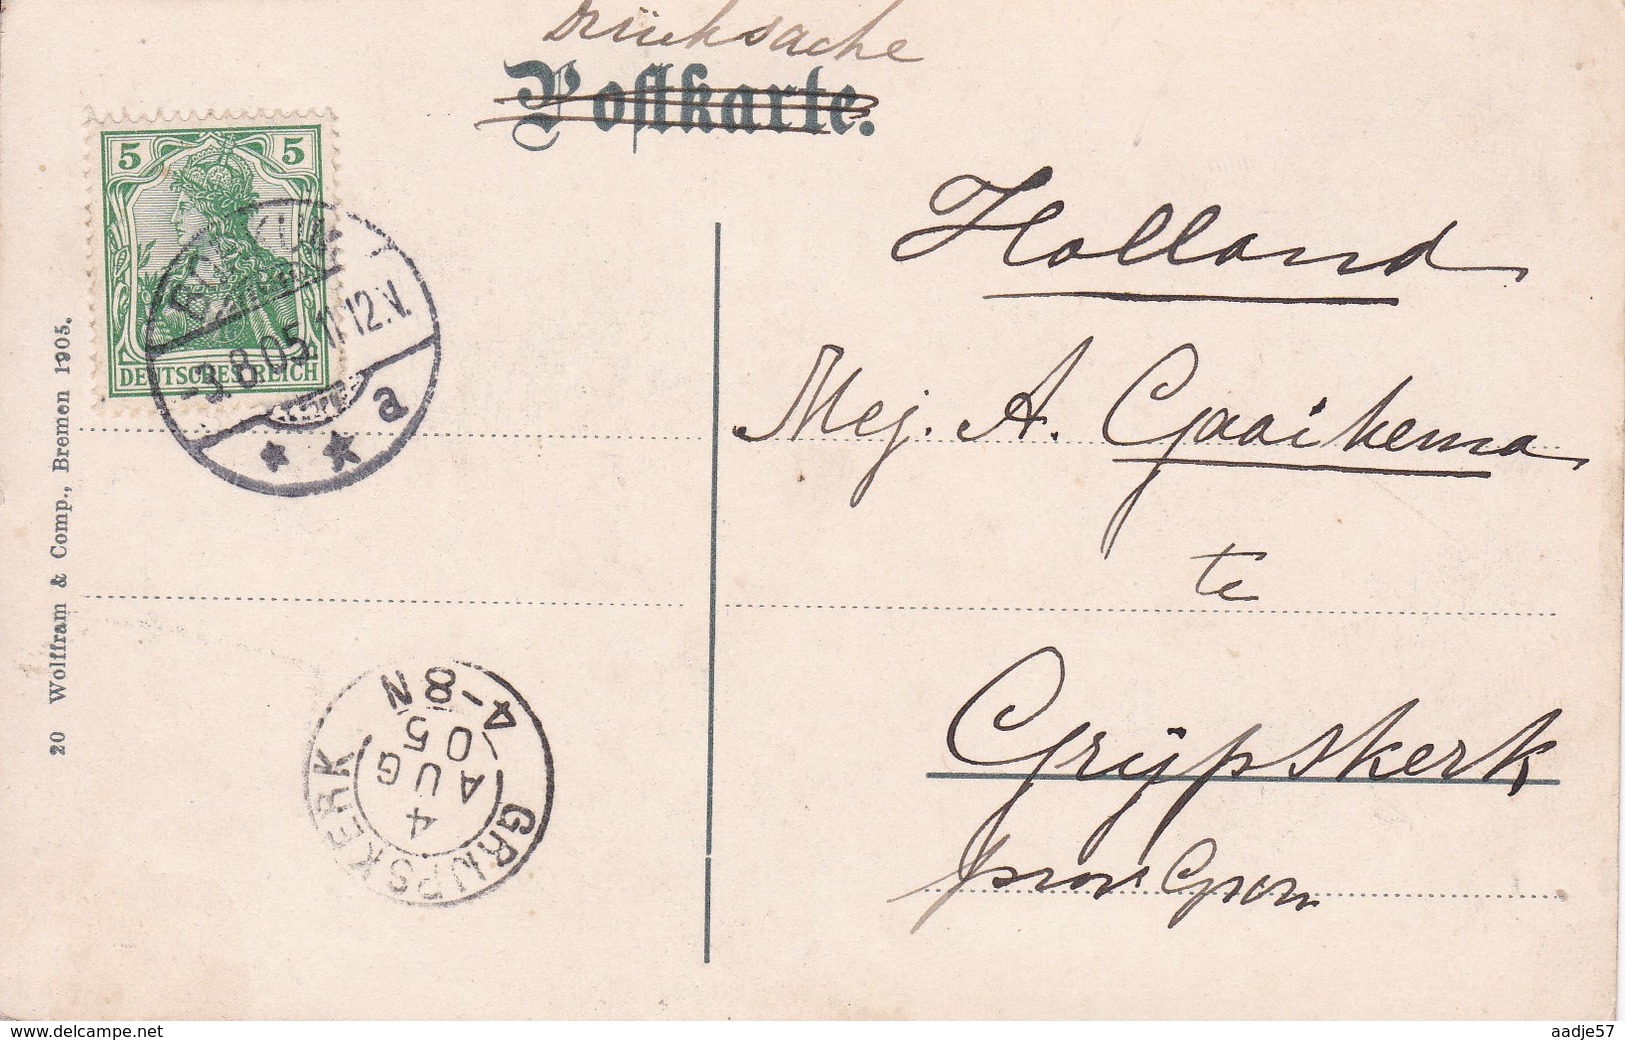 Drücksache
Postkarte.
5 5
DEUTSCHES REICH
BORKUM
-3.8.05.11-12.V.
a
Holland
Mej. A. Gaaikema
te
Grijpskerk
prov Gron
20 Wolffram & Comp., Bremen 1905.
GRIJPSKERK
4
AUG
05
4-8N
www.delcampe.net
aadje57